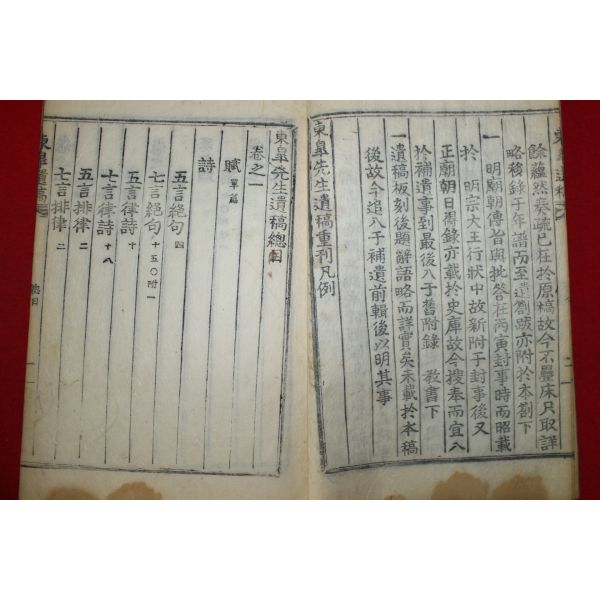 餘蘊然奏疏已在於原稿故今不疊床只取詳
略移錄于年譜而至遺劄跋亦附於本劄下
一明廟朝傳旨與批答在丙寅封事時而昭載
於 明宗大王行狀中故新附于封事後又
正廟朝日得錄亦載於史庫故今搜奉而宜入
於補遺事到最後入于舊附錄 敎書下
一遺稿板刻後題辭語略而詳實矣未載於本稿
後故今追入于補遺前輯後以明其事
東皐先生遺稿重刊凡例
東皐先生遺稿總目
卷之一
賦 單篇
詩
五言絕句 四
七言絕句 十五〇附一
五言律詩 十
七言律詩 十八
五言排律 二
七言排律 二
東皐遺稿
總目